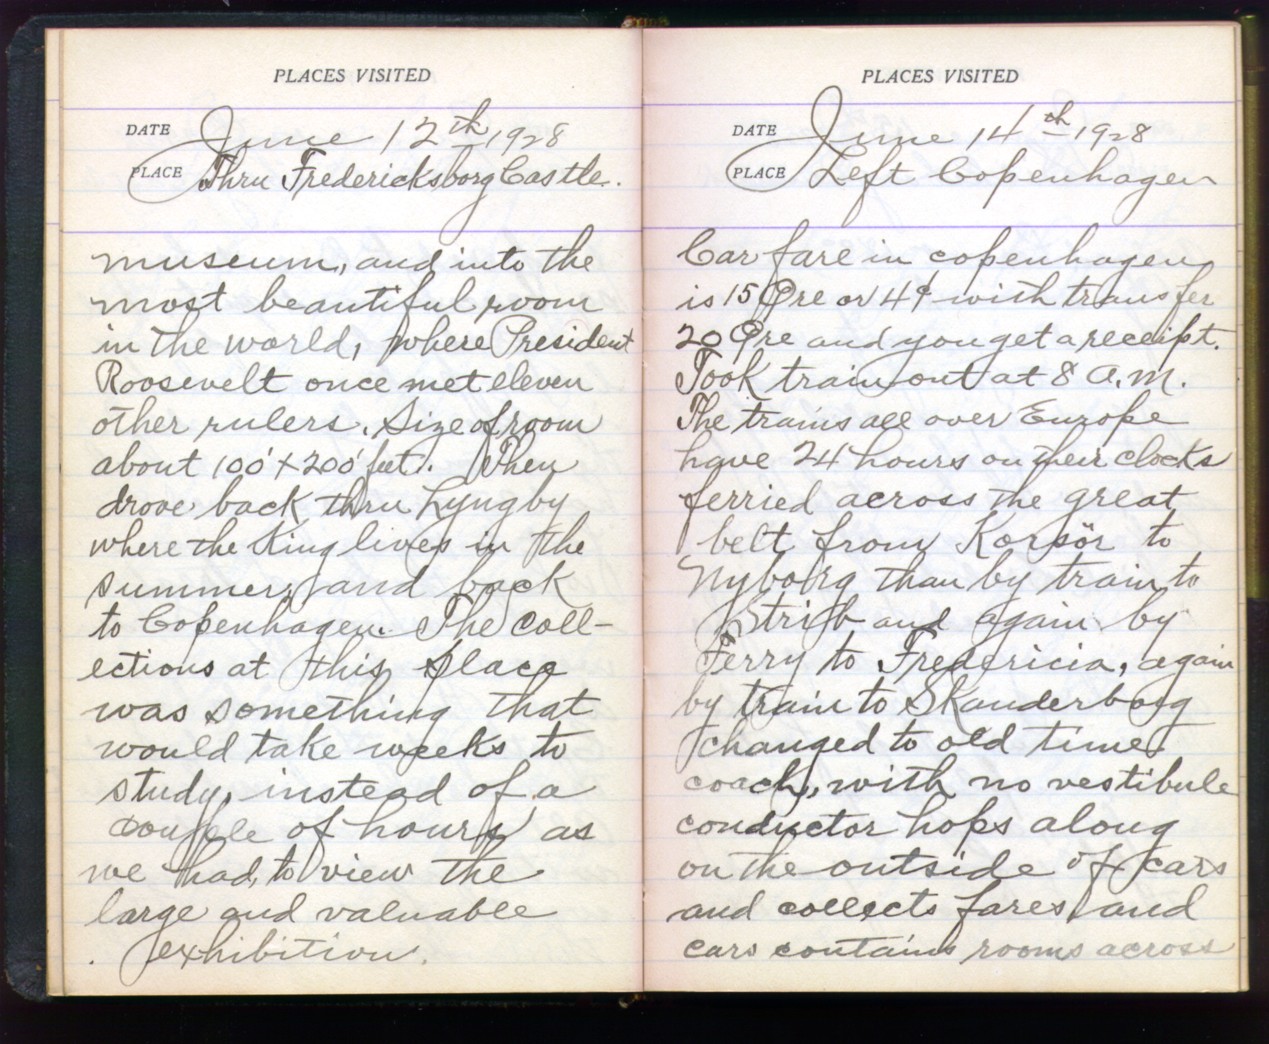 PLACES VISITED
DATE June 12th, 1928
PLACE Thru Fredericksborg Castle.
museum, and into the
most beautiful room
in the world, where President
Roosevelt once met eleven
other rulers. Size of room
about 100'x200' feet. Then
drove back thru Lyngby
where the King lives in the
summer, and back
to Copenhagen. The coll-
ections at this place
was something that
would take weeks to
study, instead of a
couple of hours as
we had, to view the
large and valuable
exhibition.
PLACES VISITED
DATE June 14th 1928
PLACE Left Copenhagen
Car fare in copenhagen
is 15 Øre or 4¢ with transfer
20 Øre and you get a receipt.
Took train out at 8 A.M.
The trains all over Europe
have 24 hours on their clocks
ferried across the great
belt from Korsör to
Nyborg than by train to
Strib and again by
Ferry to Fredericia, again
by train to Skanderborg
changed to old time
coach, with no vestibule
conductor hops along
on the outside of cars
and collects fares, and
cars contains rooms across